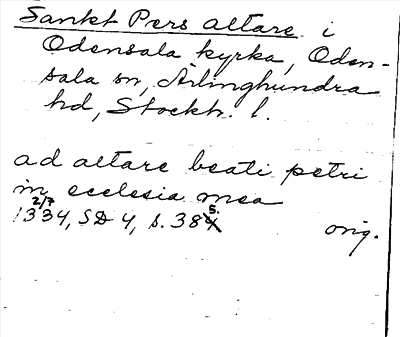 Sankt Pers altare i
Odensala kyrka, Oden-
sala sn, Ärlinghundra
hd, Stockh. l.
ad altare beati petri
in ecclesia mea
1334, 2/7 SD 4, s. 385. orig.